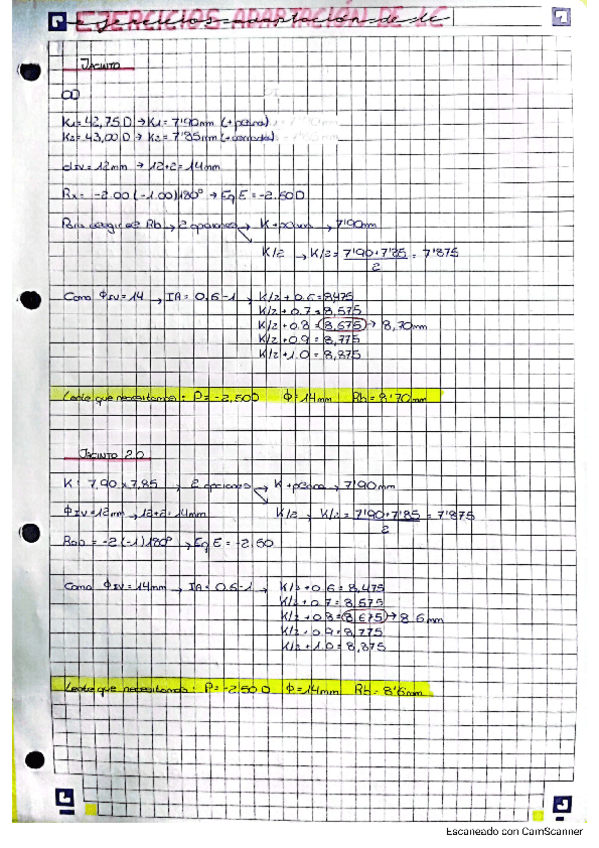 EJERCICIOS ADAPTACIÓN DE LC
JACINTO
OD
K1 = 42,75D → K1 = 7'90mm (+plana)
K2 = 43,00D → K2 = 7'85mm (+cerrada)
dIV = 12mm → 12+2 = 14mm
Rx = -2.00 (-1.00) 180° → Eq E = -2.50D
Para escoger el Rb → 2 opciones → K + plana → 7'90mm
K/2 → K/2 = 7'90+7'85 / 2 = 7'875
Como ΦIV = 14 → IA = 0.6-1 → K/2 + 0.6 = 8,475
K/2 + 0.7 = 8,575
K/2 + 0.8 = 8,675 → 8,70mm
K/2 + 0.9 = 8,775
K/2 + 1.0 = 8,875
Lente que necesitamos: P = -2,50D Φ = 14mm Rb = 8'70mm
JACINTO 2.0
K: 7,90 x 7,85 → 2 opciones → K + plana → 7'90mm
ΦIV = 12mm → 12+2 = 14mm K/2 → K/2 = 7'90+7'85 / 2 = 7'875
ROD = -2 (-1) 180° → Eq E = -2,50
Como ΦIV = 14mm → IA = 0.6-1 → K/2 + 0.6 = 8,475
K/2 + 0.7 = 8,575
K/2 + 0.8 = 8,675 → 8.6mm
K/2 + 0.9 = 8,775
K/2 + 1.0 = 8,875
Lente que necesitamos: P = -2,50 D Φ = 14mm Rb = 8'6mm
Escaneado con CamScanner